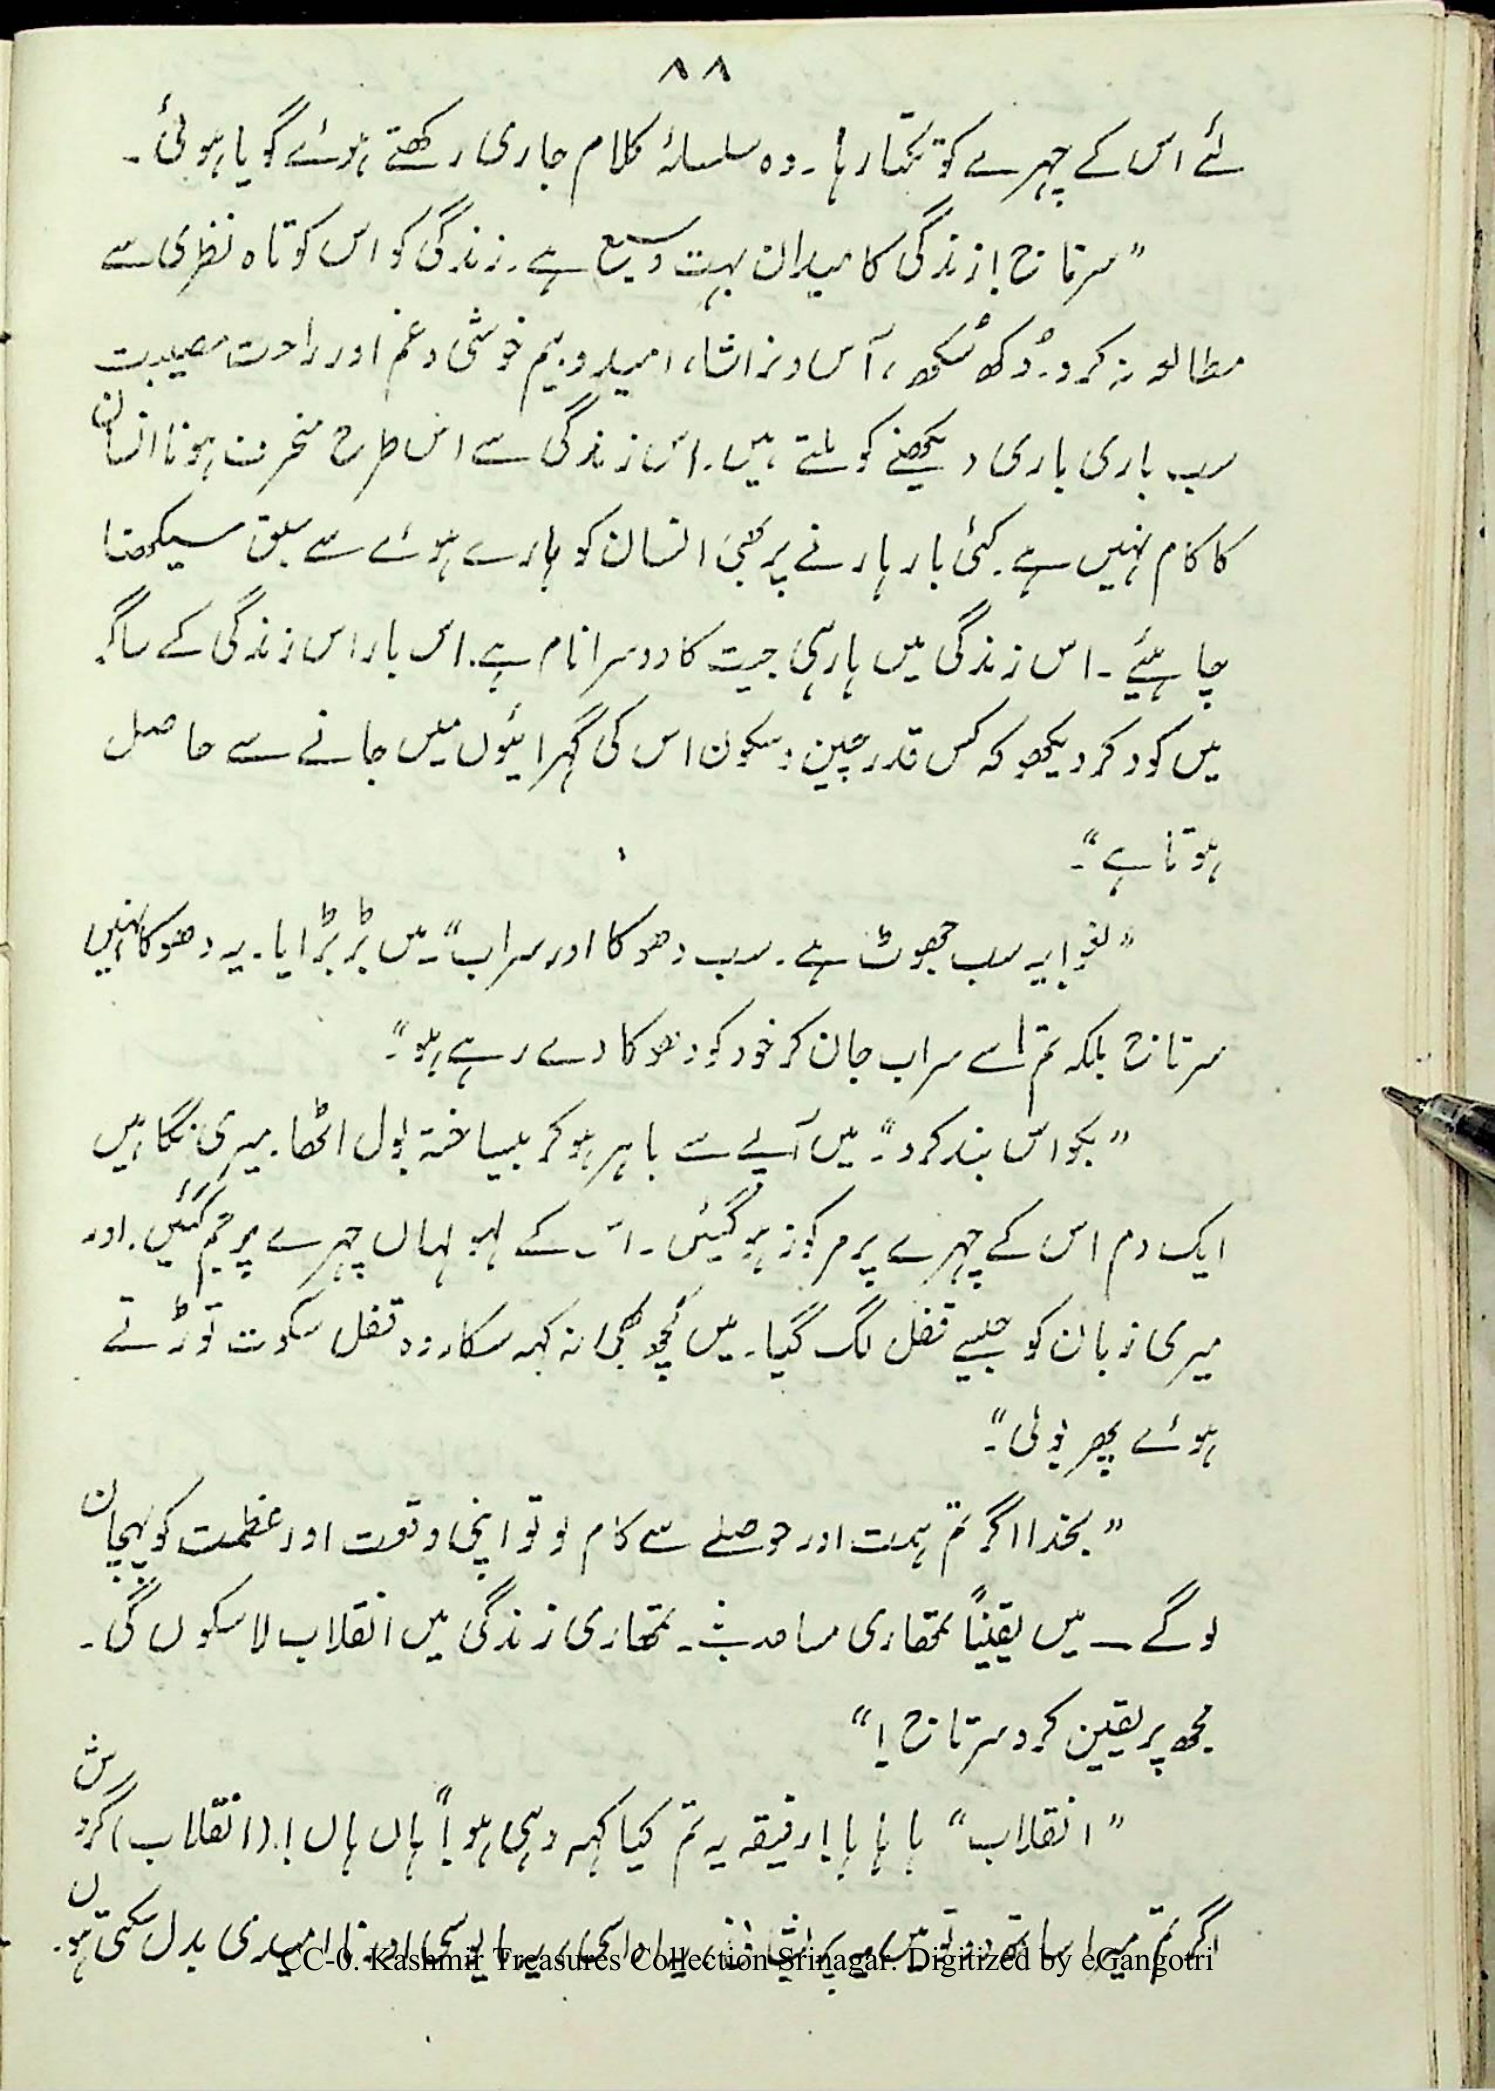 ۸۸
لئے اس کے چہرے کو تکتا رہا۔ وہ سلسلۂ کلام جاری رکھتے ہوئے گویا ہوئی۔
"سرتاج! زندگی کا میدان بہت وسیع ہے۔ زندگی کو اس کوتاہ نظری سے
مطالعہ نہ کرو۔ دُکھ سُکھ، آس و نراشا، امید و بیم خوشی و غم اور راحت مصیبت
سب باری باری دیکھنے کو ملتے ہیں۔ اس زندگی سے اس طرح منحرف ہونا انسان
کا کام نہیں ہے۔ کئی بار ہارنے پر بھی انسان کو ہارے ہوئے سے سبق سیکھنا
چاہئیے۔ اس زندگی میں ہار ہی جیت کا دوسرا نام ہے۔ اس بار اس زندگی کے ساگر
میں کود کر دیکھو کہ کس قدر چین و سکون اس کی گہرائیوں میں جانے سے حاصل
ہوتا ہے"۔
"لغو! یہ سب جھوٹ ہے۔ سب دھوکا اور سراب"۔ میں بڑبڑایا۔ یہ دھوکا نہیں
سرتاج بلکہ تم اسے سراب جان کر خود کو دھوکا دے رہے ہو"۔
"بکواس بند کرو"۔ میں آپے سے باہر ہو کر بیساختہ بول اٹھا۔ میری نگاہیں
ایک دم اس کے چہرے پر مرکوز ہو گئیں۔ اس کے لہو لہاں چہرے پر جم گئیں۔ اور
میری زبان کو جیسے قفل لگ گیا۔ میں کچھ بھی نہ کہہ سکا۔ وہ قفل سکوت توڑتے
ہوئے پھر بولی"۔
"بخدا اگر تم ہمت اور حوصلے سے کام لو تو اپنی وقعت اور عظمت کو پہچان
لو گے — میں یقیناً تمھاری مساعدت۔ تمھاری زندگی میں انقلاب لا سکوں گی۔
مجھ پر یقین کرو سرتاج!"
"انقلاب" ہا ہا ہا! رفیقہ یہ تم کیا کہہ رہی ہو!" ہاں ہاں!۔ (انقلاب) گردش
اگر تم میرا ساتھ دو تو میں یہ پریشانی، یہ اداسی، یہ مایوسی اور نا امیدی بدل سکتی ہوں۔
CC-0. Kashmir Treasures Collection Srinagar. Digitized by eGangotri